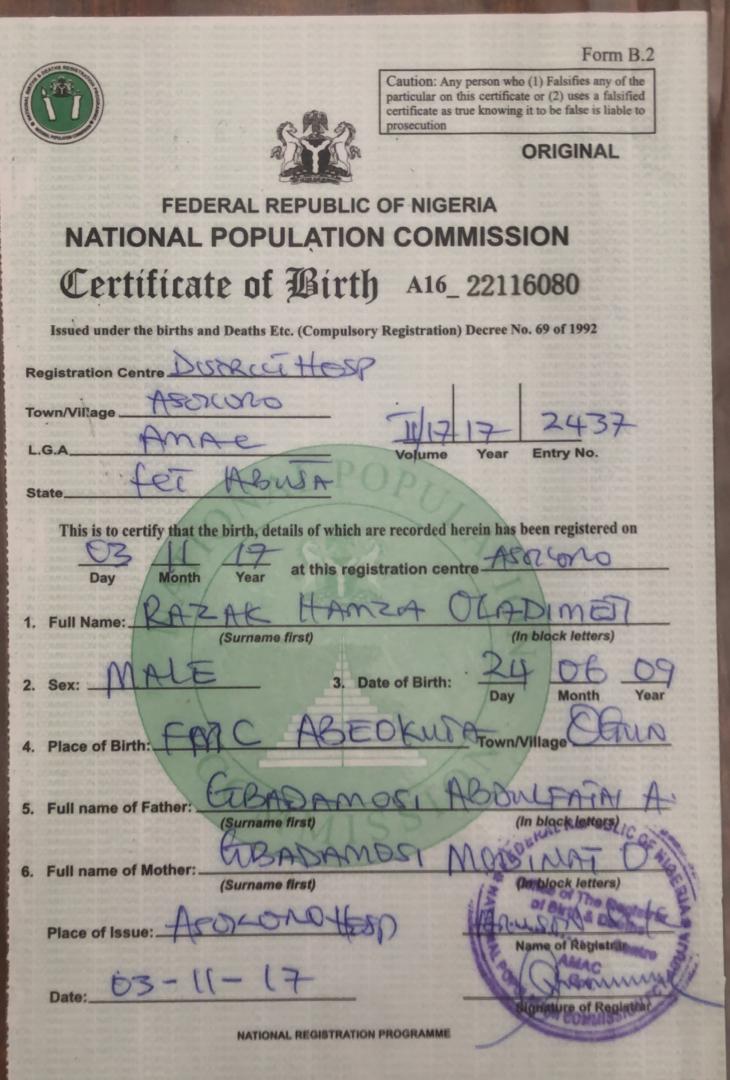 Form B.2
Caution: Any person who (1) Falsifies any of the
particular on this certificate or (2) uses a falsified
certificate as true knowing it to be false is liable to
prosecution
ORIGINAL
FEDERAL REPUBLIC OF NIGERIA
NATIONAL POPULATION COMMISSION
Certificate of Birth A16_ 22116080
Issued under the births and Deaths Etc. (Compulsory Registration) Decree No. 69 of 1992
Registration Centre DISTRICT HOSP
Town/Village ASOKORO
L.G.A AMAC II/17 17 2437
Volume Year Entry No.
State FCT ABUJA
This is to certify that the birth, details of which are recorded herein has been registered on
03 11 17 at this registration centre ASOKORO
Day Month Year
1. Full Name: RAZAK HAMZA OLADIMEJI
(Surname first) (In block letters)
2. Sex: MALE 3. Date of Birth: 24 06 09
Day Month Year
4. Place of Birth: FMC ABEOKUTA Town/Village OGUN
5. Full name of Father: GBADAMOSI ABDULFATAI A.
(Surname first) (In block letters)
6. Full name of Mother: GBADAMOSI O
(Surname first) (In block letters)
Place of Issue: ASOKORO HOSP
Name of Registrar
Date: 03-11-17
Signature of Registrar
NATIONAL REGISTRATION PROGRAMME